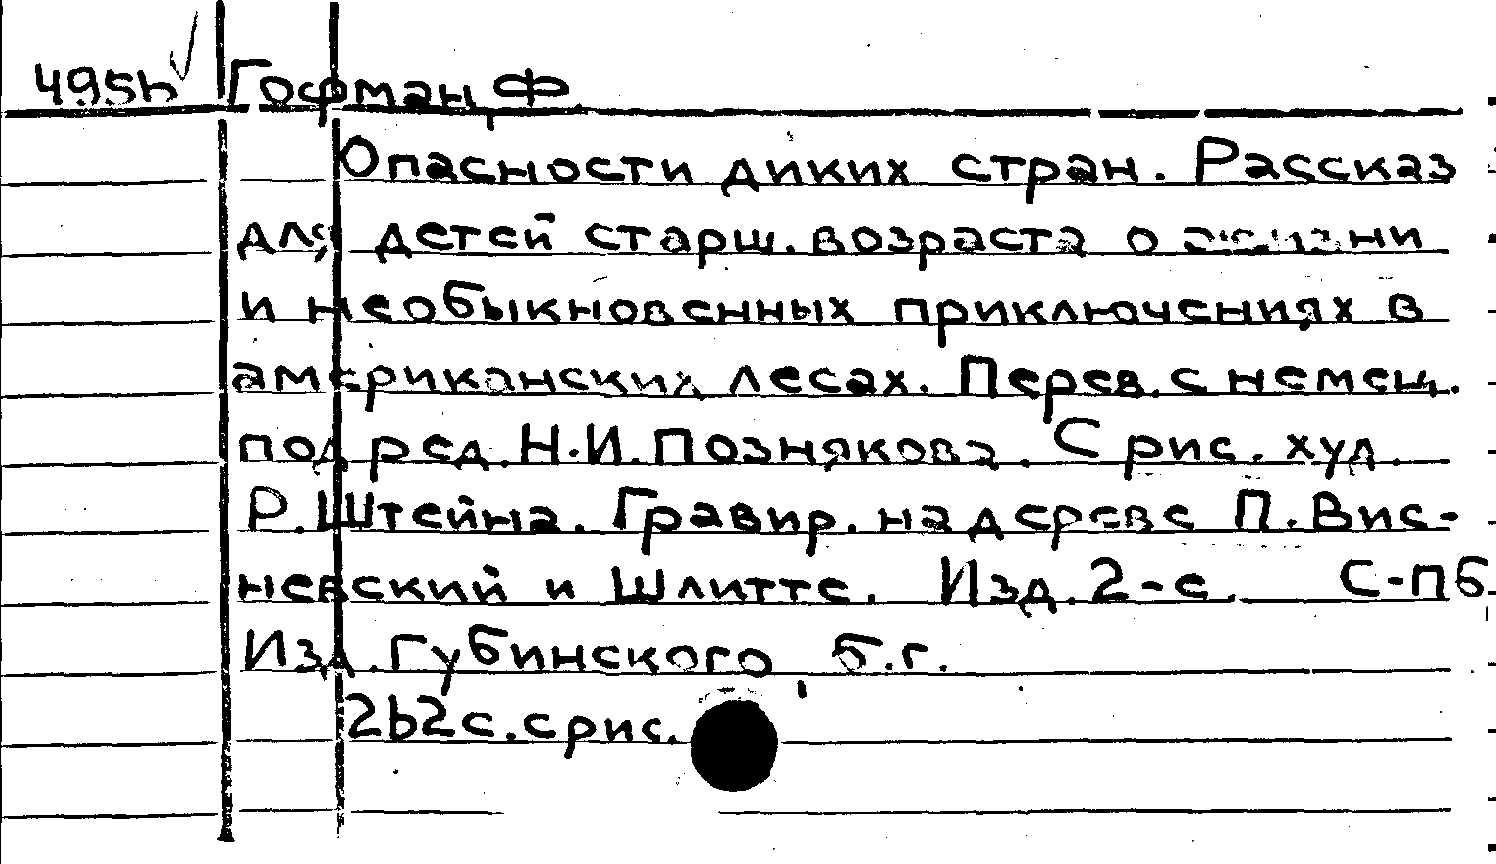 495h Гофман, Ф.
Опасности диких стран. Рассказ
для детей старш. возраста о жизни
и необыкновенных приключениях в
американских лесах. Перев. с немец.
под ред. Н.И. Познякова. С рис. худ.
Р. Штейна. Гравир. на дереве П. Вис-
невский и Шлитте. Изд. 2-е. С-Пб
Изд. Губинского, б.г.
262 с. с рис.